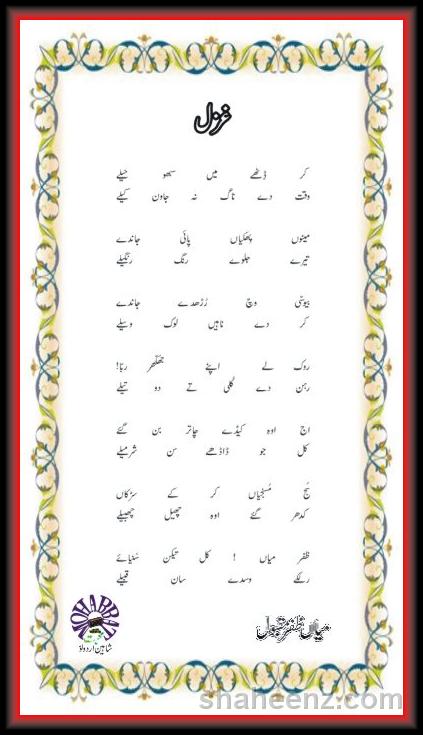 غزل
کر ڈٹھے میں سبھو حیلے
وقت دے ناگ نہ جاون کیلے
مینوں پھکیاں پائی جاندے
تیرے جلوے رنگ رنگیلے
بیوسی وچ رُڑھدے جاندے
کر دے ناہیں لوک وسیلے
روک لے اپنے جھکھڑ ربا!
رہن دے کُلی تے دو تیلے
اج اوہ کیڈے چاتر بن گئے
کل جو ڈاڈھے سن شرمیلے
سُنج مُسنجیاں کر کے سڑکاں
کدھر گئے اوہ چھیل چھبیلے
ظفر میاں ! کل تیکن سُنیائے
رلکے وسدے سان قبیلے
میاں ظفر مقبول
شاہین اردو
shaheenz.com